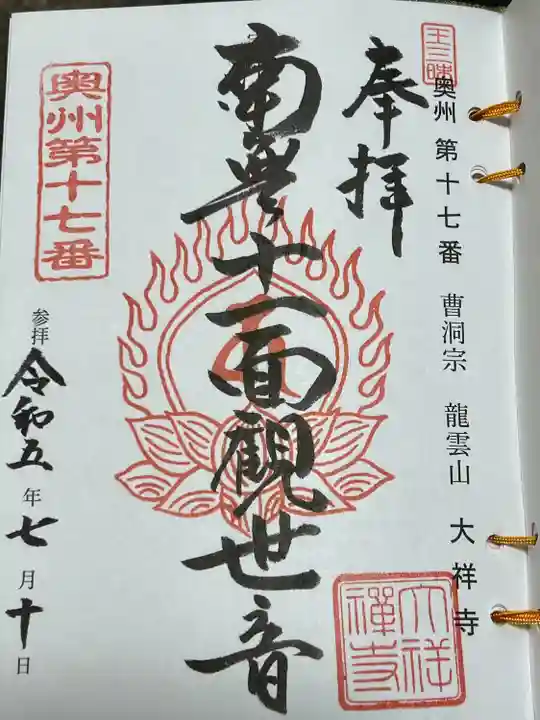 王三昧
奥州 第十七番 曹洞宗 龍雲山 大祥寺
奉拝
南無十一面觀世音
大祥
禅寺
奥州第十七番
参拝 令和五年七月十日